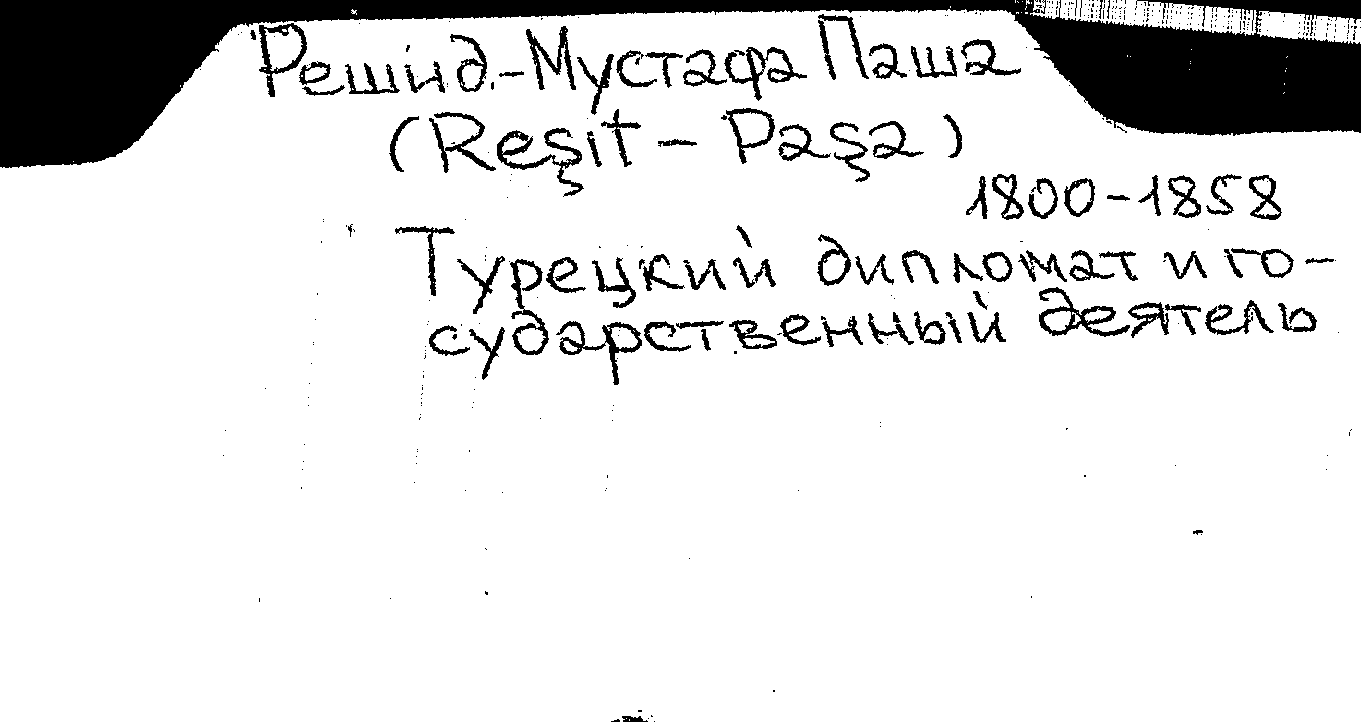 Решид-Мустафа Паша
(Reşit - Paşa)
1800-1858
Турецкий дипломат и го-
сударственный деятель